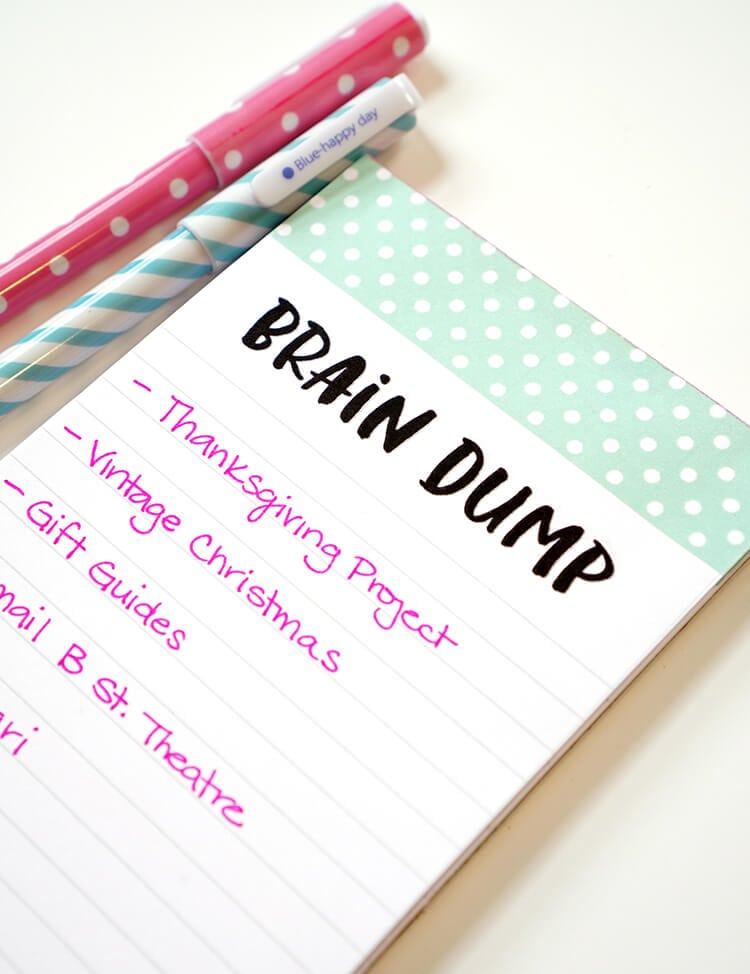 Blue-happy day
BRAiN DUMP
- Thanksgiving Project
- Vintage Christmas
- Gift Guides
mail B St. Theatre
ri